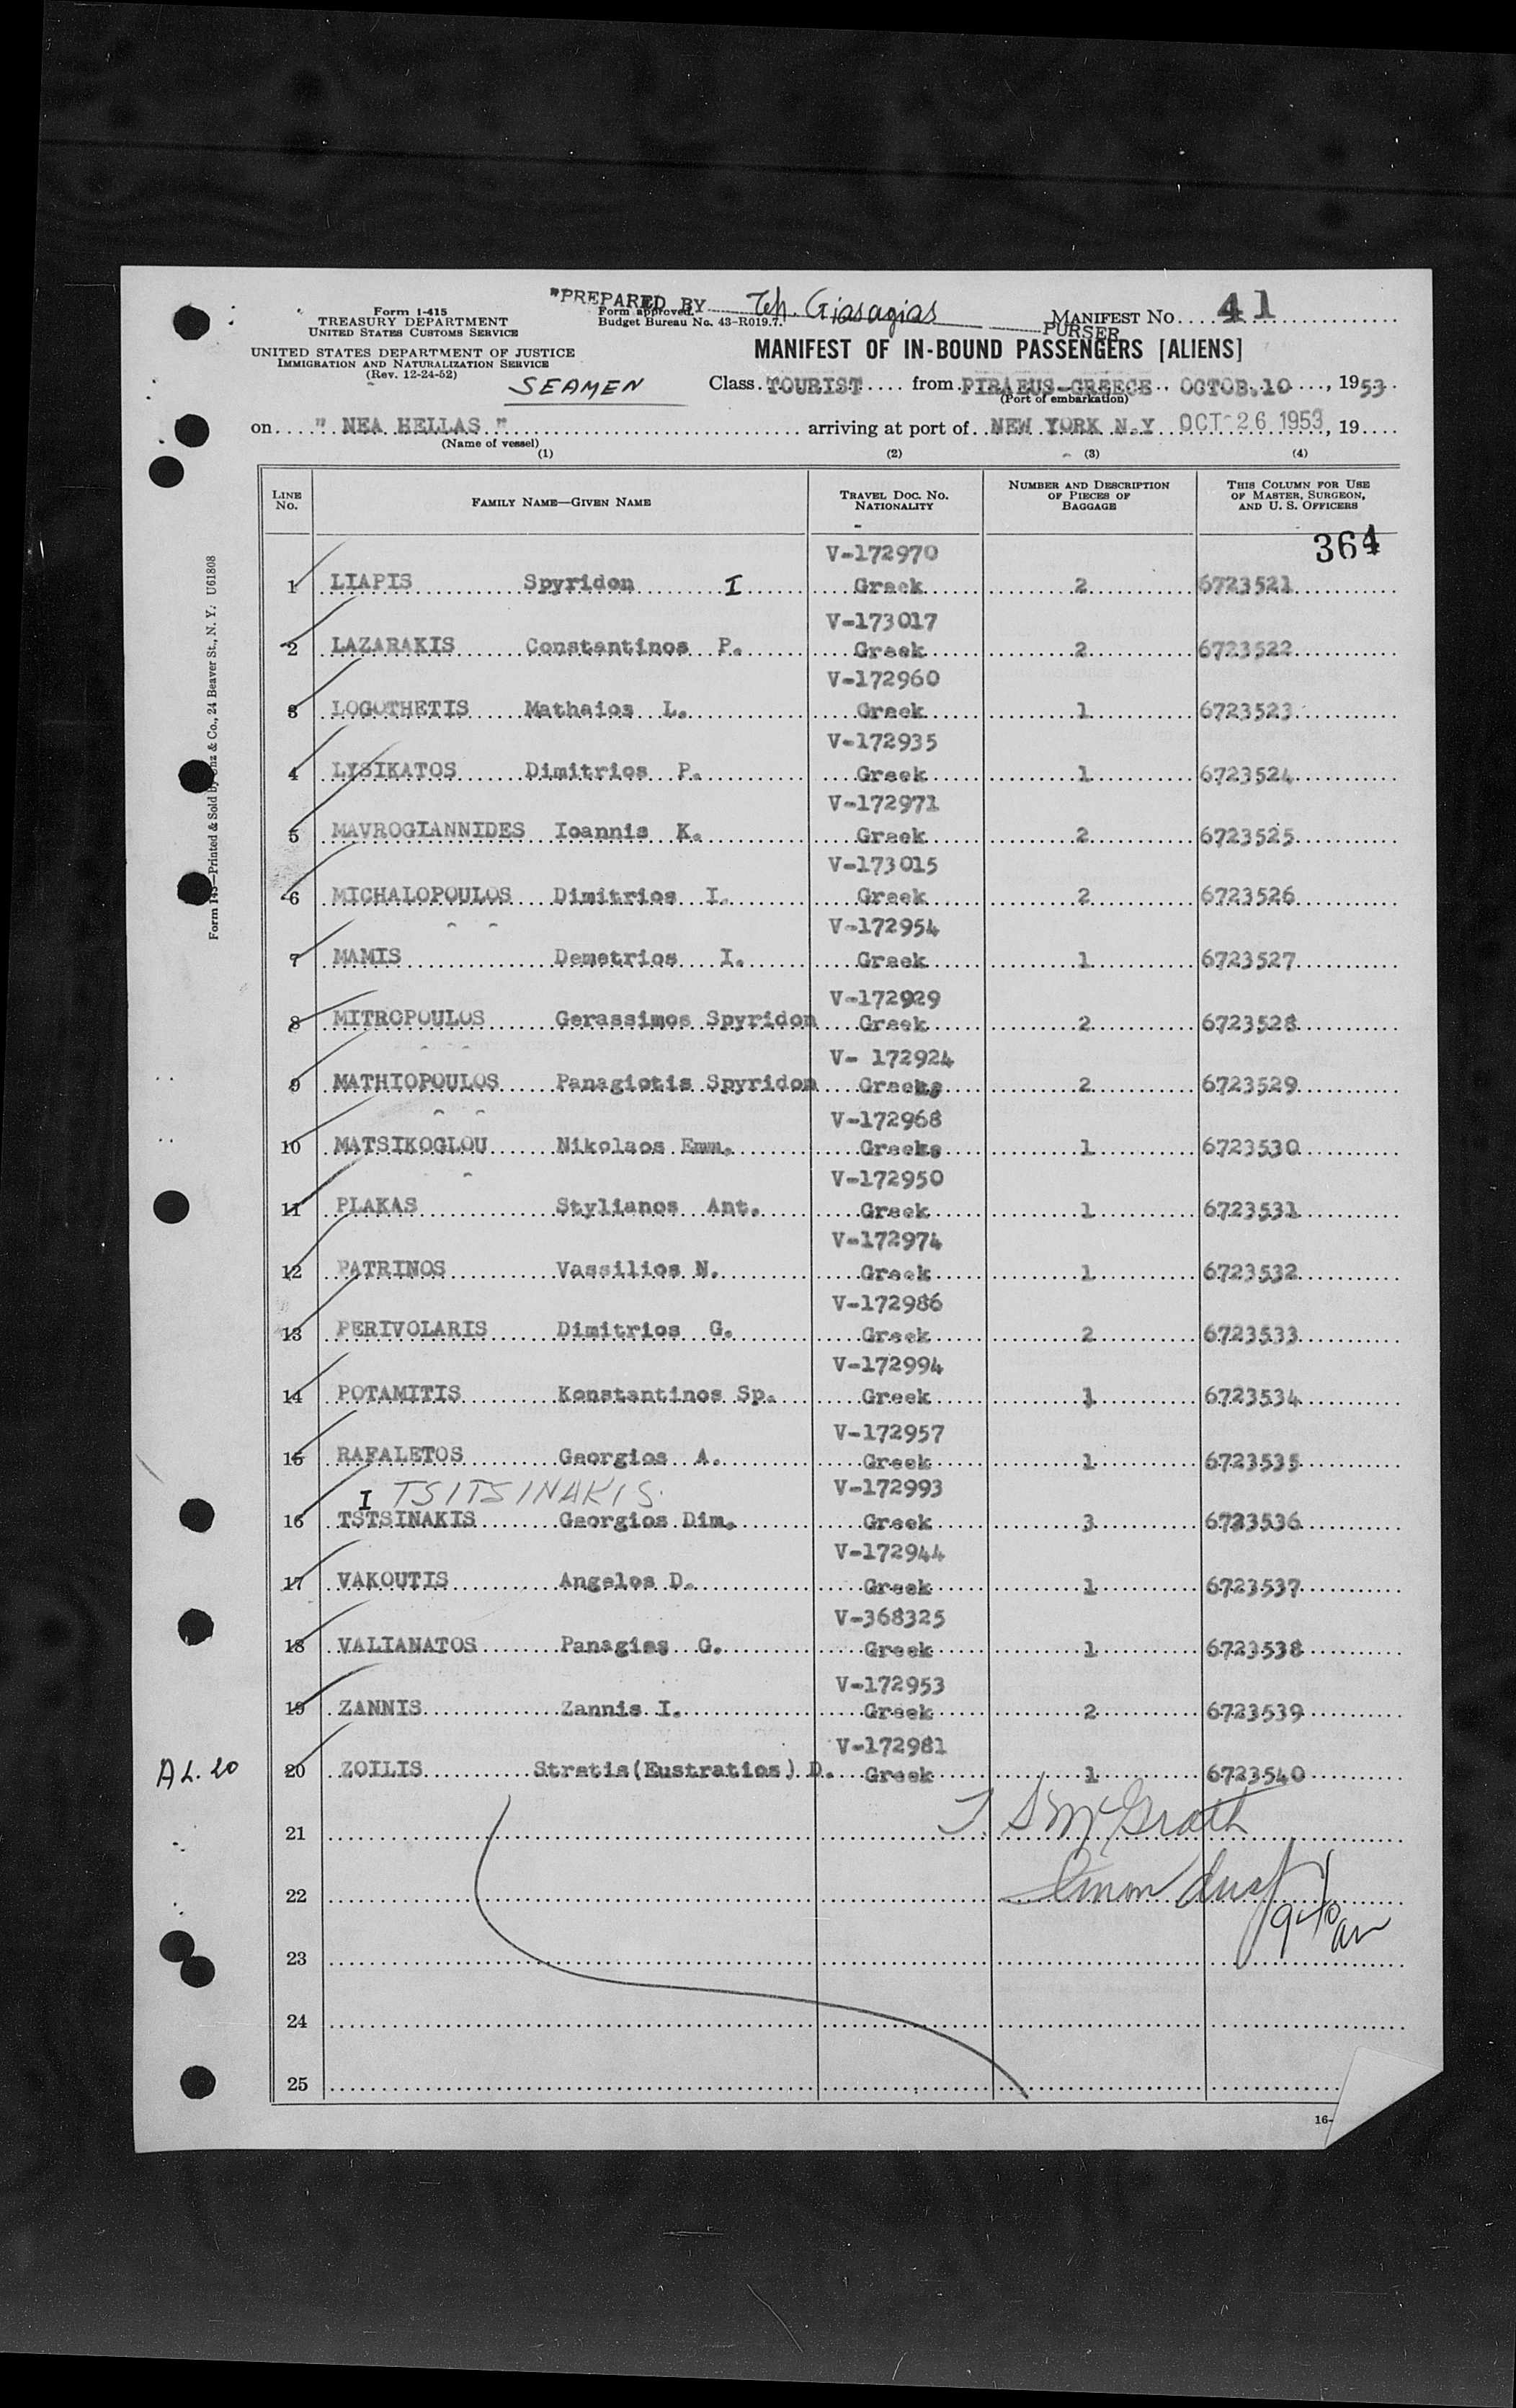 "PREPARED BY Th. Giasagias PURSER
Form I-415
TREASURY DEPARTMENT
UNITED STATES CUSTOMS SERVICE
Form approved.
Budget Bureau No. 43-R019.7.
MANIFEST No. 41
UNITED STATES DEPARTMENT OF JUSTICE
IMMIGRATION AND NATURALIZATION SERVICE
(Rev. 12-24-52)
MANIFEST OF IN-BOUND PASSENGERS [ALIENS]
SEAMEN
Class TOURIST from PIRAEUS-GREECE OCTOB.10, 1953
(Port of embarkation)
on " NEA HELLAS " arriving at port of NEW YORK N.Y OCT 26 1953, 19
(Name of vessel)
(1) (2) (3) (4)
LINE No. FAMILY NAME—GIVEN NAME TRAVEL DOC. NO. NATIONALITY NUMBER AND DESCRIPTION OF PIECES OF BAGGAGE THIS COLUMN FOR USE OF MASTER, SURGEON, AND U. S. OFFICERS
364
V-172970
1 LIAPIS Spyridon I Greek 2 6723521
V-173017
2 LAZARAKIS Constantinos P. Greek 2 6723522
V-172960
3 LOGOTHETIS Mathaios L. Greek 1 6723523
V-172935
4 LYSIKATOS Dimitrios P. Greek 1 6723524
V-172971
5 MAVROGIANNIDES Ioannis K. Greek 2 6723525
V-173015
6 MICHALOPOULOS Dimitrios I. Greek 2 6723526
V-172954
7 MAMIS Demetrios I. Greek 1 6723527
V-172929
8 MITROPOULOS Gerassimos Spyridon Greek 2 6723528
V- 172924
9 MATHIOPOULOS Panagiotis Spyridon Greeks 2 6723529
V-172968
10 MATSIKOGLOU Nikolaos Emm. Greeks 1 6723530
V-172950
11 PLAKAS Stylianos Ant. Greek 1 6723531
V-172974
12 PATRINOS Vassilios N. Greek 1 6723532
V-172986
13 PERIVOLARIS Dimitrios G. Greek 2 6723533
V-172994
14 POTAMITIS Konstantinos Sp. Greek 1 6723534
V-172957
15 RAFALETOS Georgios A. Greek 1 6723535
I TSITSINAKIS. V-172993
16 TSTSINAKIS Georgios Dim. Greek 3 6723536
V-172944
17 VAKOUTIS Angelos D. Greek 1 6723537
V-368325
18 VALIANATOS Panagies G. Greek 1 6723538
V-172953
19 ZANNIS Zannis I. Greek 2 6723539
V-172981
AL. 20 20 ZOILIS Stratis(Eustratios) D. Greek 1 6723540
21 T. S McGrath
22
23
24
25
16-
Form 145—Printed & Sold by Unz & Co., 24 Beaver St., N. Y. U61808